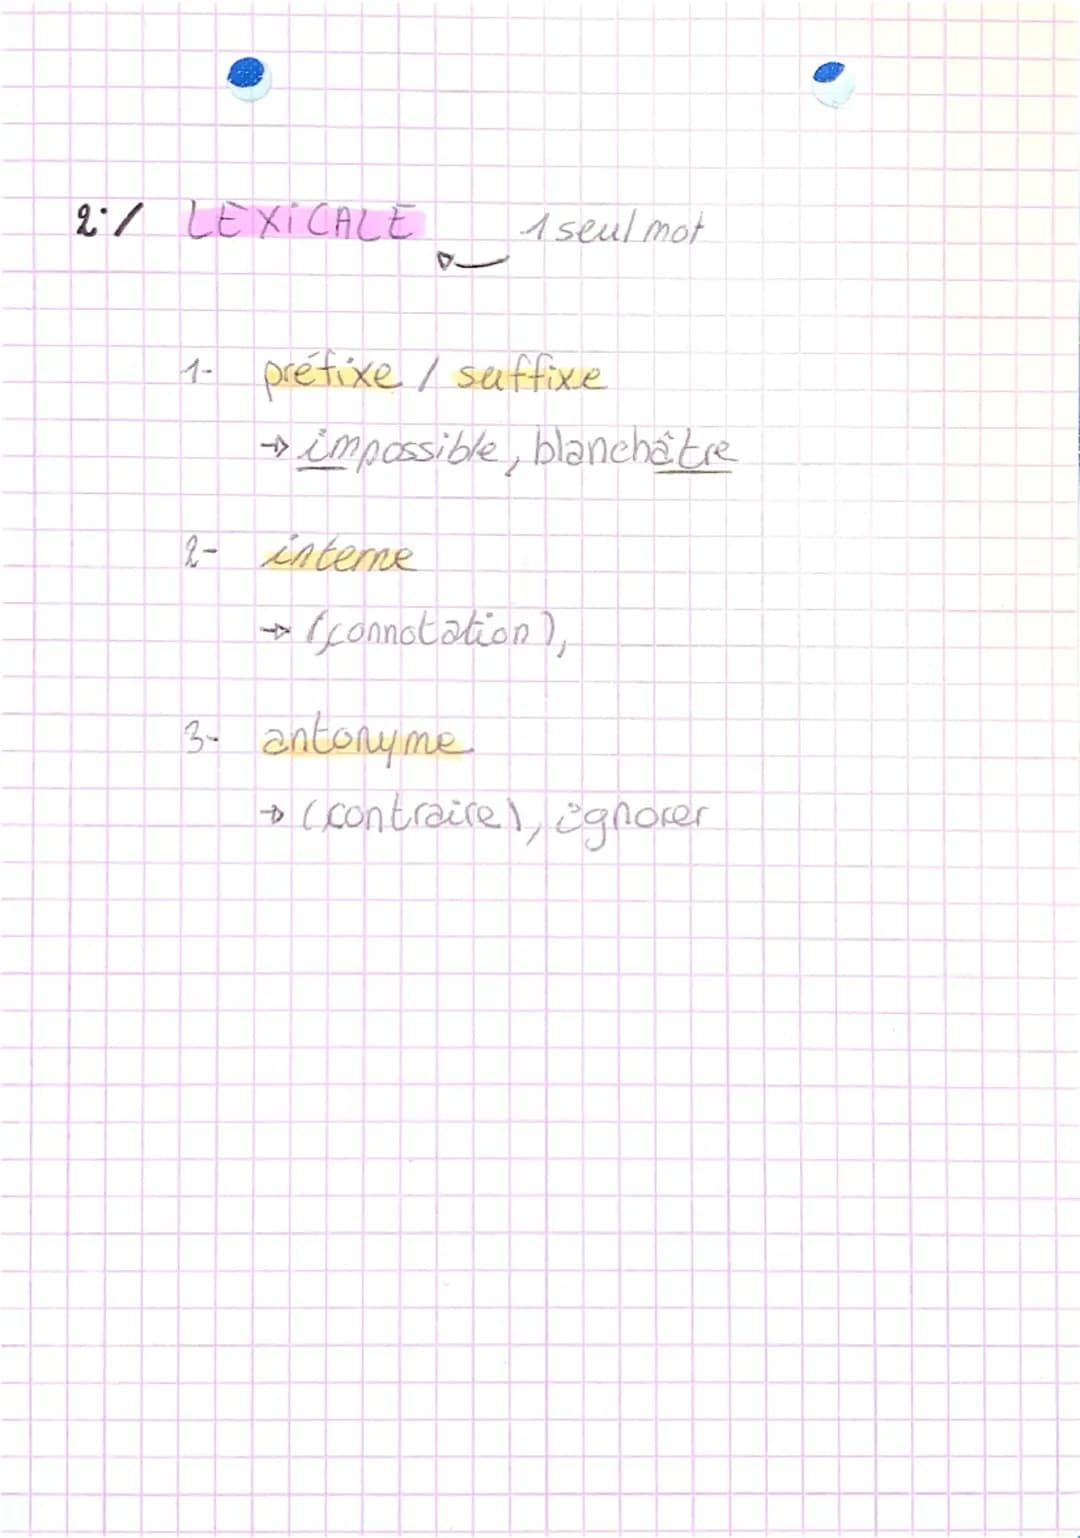 2°/ LEXiCALE 1 seul mot
1- préfixe / suffixe
→ impossible, blanchâtre
2- interne
→ (connotation),
3- antonyme
→ (contraire), ignorer